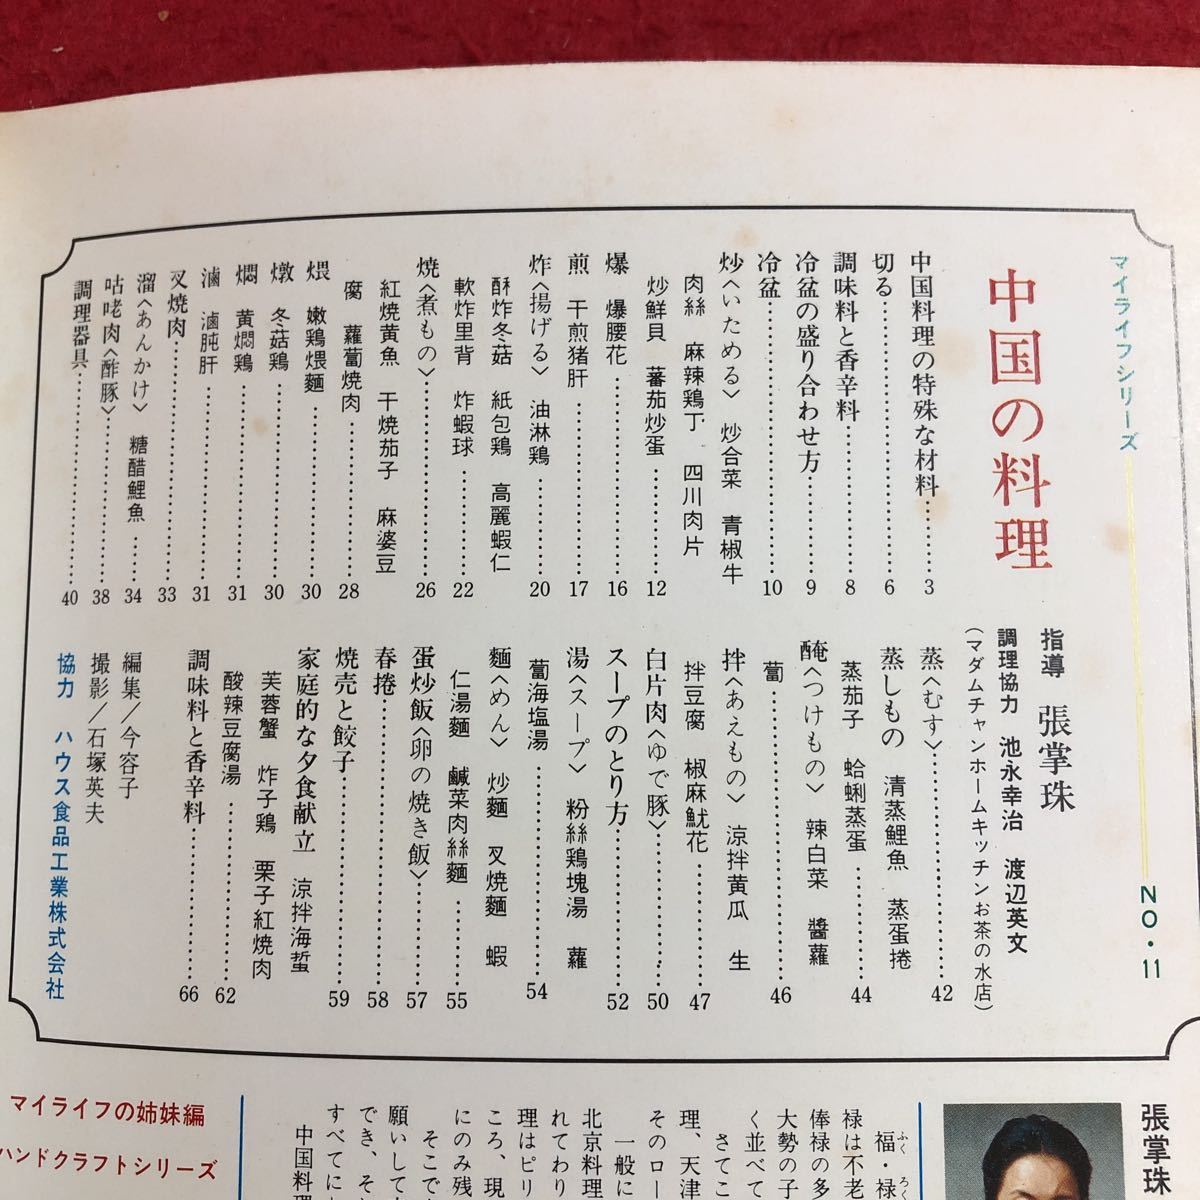 マイライフシリーズ NO・11
中国の料理
指導 張掌珠
調理協力 池永幸治 渡辺英文
(マダムチャンホームキッチンお茶の水店)
中国料理の特殊な材料……3
切る……6
調味料と香辛料……8
冷盆の盛り合わせ方……9
冷盆……10
炒〈いためる〉 炒合菜 青椒牛
肉絲 麻辣鶏丁 四川肉片
炒鮮貝 蕃茄炒蛋……12
爆 爆腰花……16
煎 干煎猪肝……17
炸〈揚げる〉 油淋鶏……20
酥炸冬菇 紙包鶏 高麗蝦仁
軟炸里背 炸蝦球……22
焼〈煮もの〉……26
紅焼黄魚 干焼茄子 麻婆豆
腐 蘿蔔焼肉……28
煨 嫩鶏煨麵……30
燉 冬菇鶏……30
燜 黄燜鶏……31
滷 滷肫肝……31
叉焼肉……33
溜〈あんかけ〉 糖醋鯉魚……34
咕咾肉〈酢豚〉……38
調理器具……40
蒸〈むす〉……42
蒸しもの 清蒸鯉魚 蒸蛋捲
蒸茄子 蛤蜊蒸蛋……44
醃〈つけもの〉 辣白菜 醬蘿
蔔……46
拌〈あえもの〉 涼拌黄瓜 生
拌豆腐 椒麻魷花……47
白片肉〈ゆで豚〉……50
スープのとり方……52
湯〈スープ〉 粉絲鶏塊湯 蘿
蔔海塩湯……54
麵〈めん〉 炒麵 叉焼麵 蝦
仁湯麵 鹹菜肉絲麵……55
蛋炒飯〈卵の焼き飯〉……57
春捲……58
焼売と餃子……59
家庭的な夕食献立 涼拌海蜇
芙蓉蟹 炸子鶏 栗子紅焼肉
酸辣豆腐湯……62
調味料と香辛料……66
編集/今容子
撮影/石塚英夫
協力 ハウス食品工業株式会社
張掌珠
福・禄
禄は不老
俸禄の多
大勢の子
く並べて
さてこ
理、天津
そのロー
一般に
北京料理
れてわり
理はピリ
ころ、現
にのみ残
そこで
願いして
でき、そ
すべてに
中国料理
マイライフの姉妹編
ハンドクラフトシリーズ